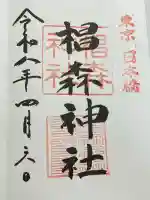 東京 日本橋
椙森神社
令和八年四月六日